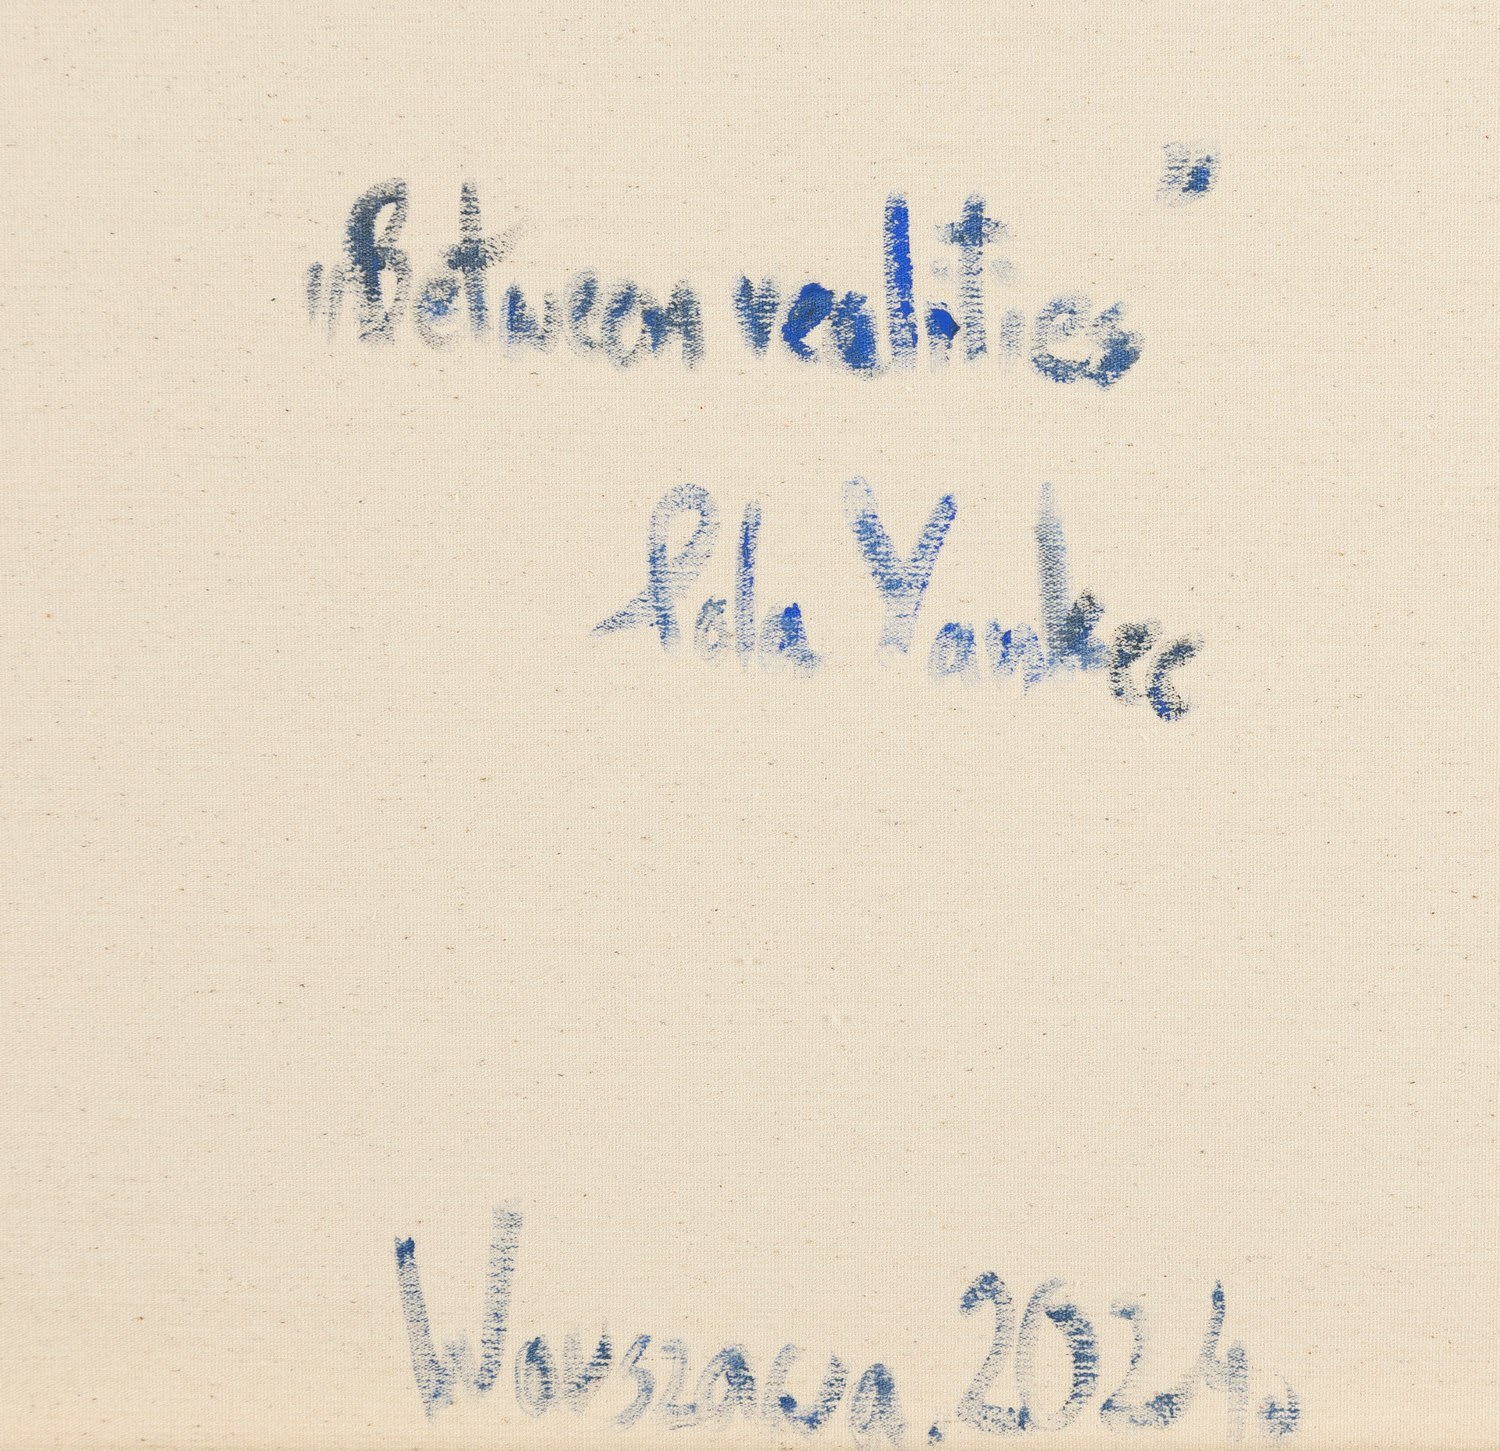 "Between realities"
Pola Yankee
Warszawa. 2024.